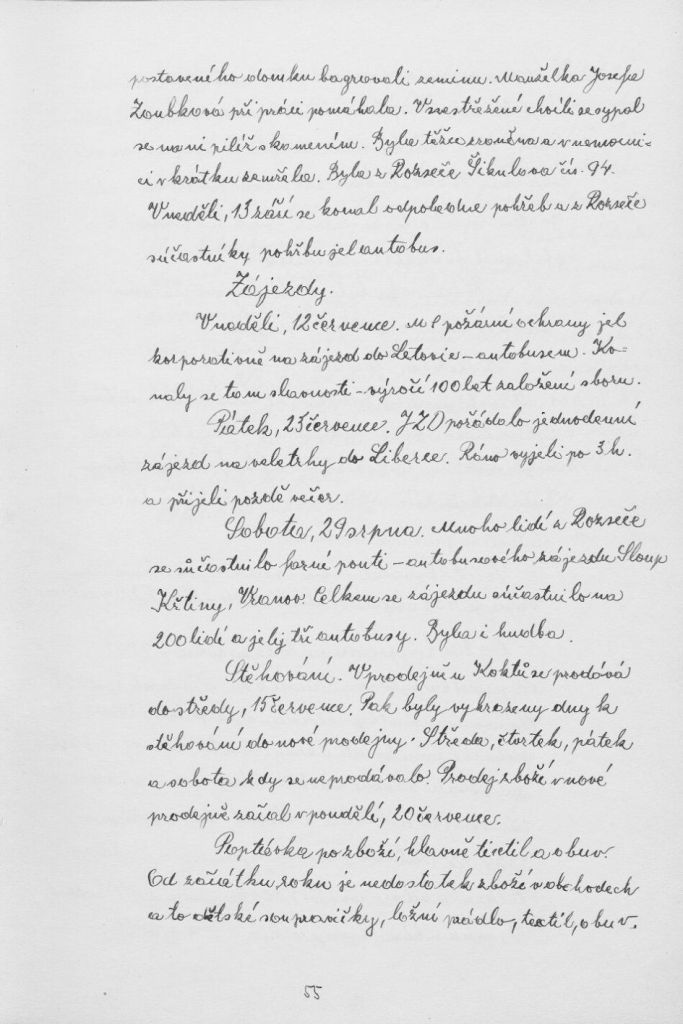 postaveného domku bagrovali zeminu. Manželka Josefa
Zoubková při práci pomáhala. V nestřežené chvíli se sypal
se na ni pilíř s kamením. Byla těžce zraněna a v nemocni=
ci v krátku zemřela. Byla z Rozseče Šikulova čís. 94.
V neděli, 13 září se konal odpoledne pohřeb a z Rozseče
súčastníky pohřbu jel autobus.
Zájezdy.
V neděli, 12 července. M S požární ochrany jel
korporativně na zájezd do Letovic – autobusem. Ko=
naly se tam slavnosti – výročí 100 let založení sboru.
Pátek, 23 července. JZD pořádalo jednodenní
zájezd na veletrhy do Liberce. Ráno vyjeli po 3 h.
a přijeli pozdě večer.
Sobota, 29 srpna. Mnoho lidí z Rozseče
se súčastnilo farní pouti – autobusového zájezdu Sloup
Křtiny, Vranov. Celkem se zájezdu súčastnilo na
200 lidí a jely tři autobusy. Byla i hudba.
Stěhování. V prodejně u Koktů se prodává
do středy, 15 července. Pak byly vyhraženy dny k
stěhování do nové prodejny. Středa, čtvrtek, pátek
a sobota kdy se neprodávalo. Prodej zboží v nové
prodejně začal v pondělí, 20 července.
Poptávka po zboží, hlavně textil a obuv.
Od začátku roku je nedostatek zboží v obchodech
a to dětské soupravičky, ložní prádlo, textil, obuv.
55